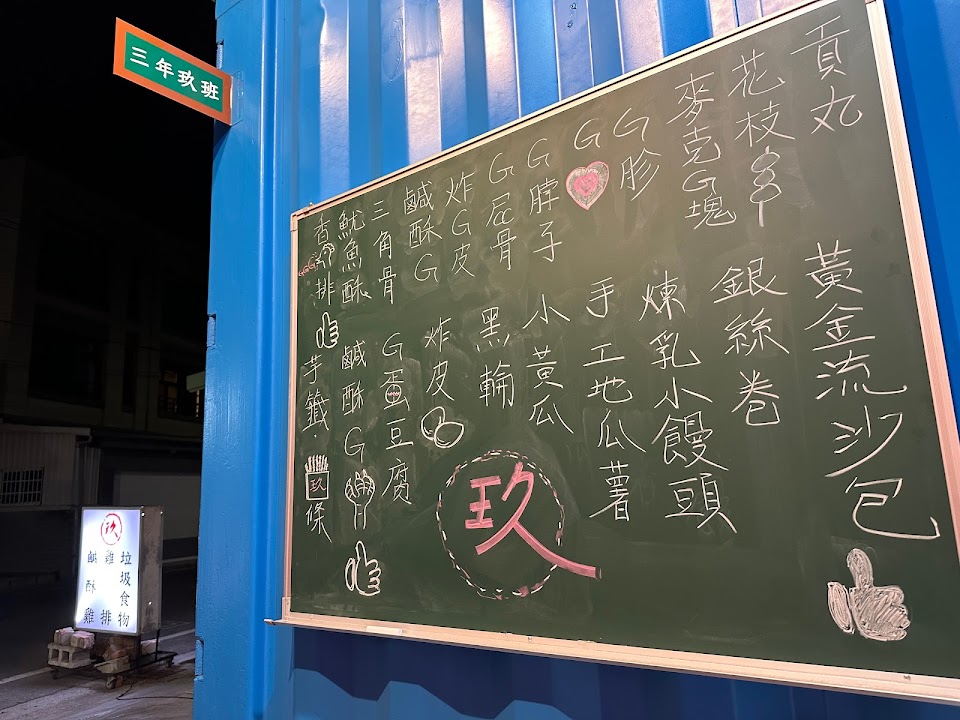 三年玖班
貢丸
花枝
麥克G塊
G胗
G
G脖子
G屁骨
炸G皮
鹹酥G
三角骨
魷魚酥
香G排
黃金流沙包
銀絲卷
煉乳小饅頭
手工地瓜薯
小黃瓜
黑輪
炸皮
G蛋豆腐
鹹酥G
芋籤.玖條
玖
玖
垃圾食物
雞排
鹹酥雞